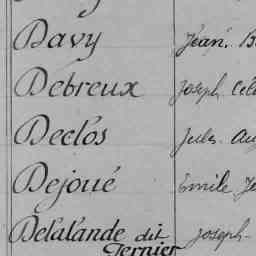 Davy Jean. B
Debreux Joseph Cél
Declos Jules. Aug
Dejoué Emile Je
Delalande dit Joseph-
Ternier